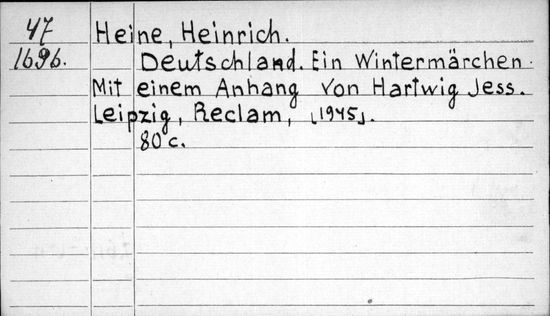 47 Heine, Heinrich.
1696. Deutschland. Ein Wintermärchen.
Mit einem Anhang von Hartwig Jess.
Leipzig, Reclam, [1945].
80 c.